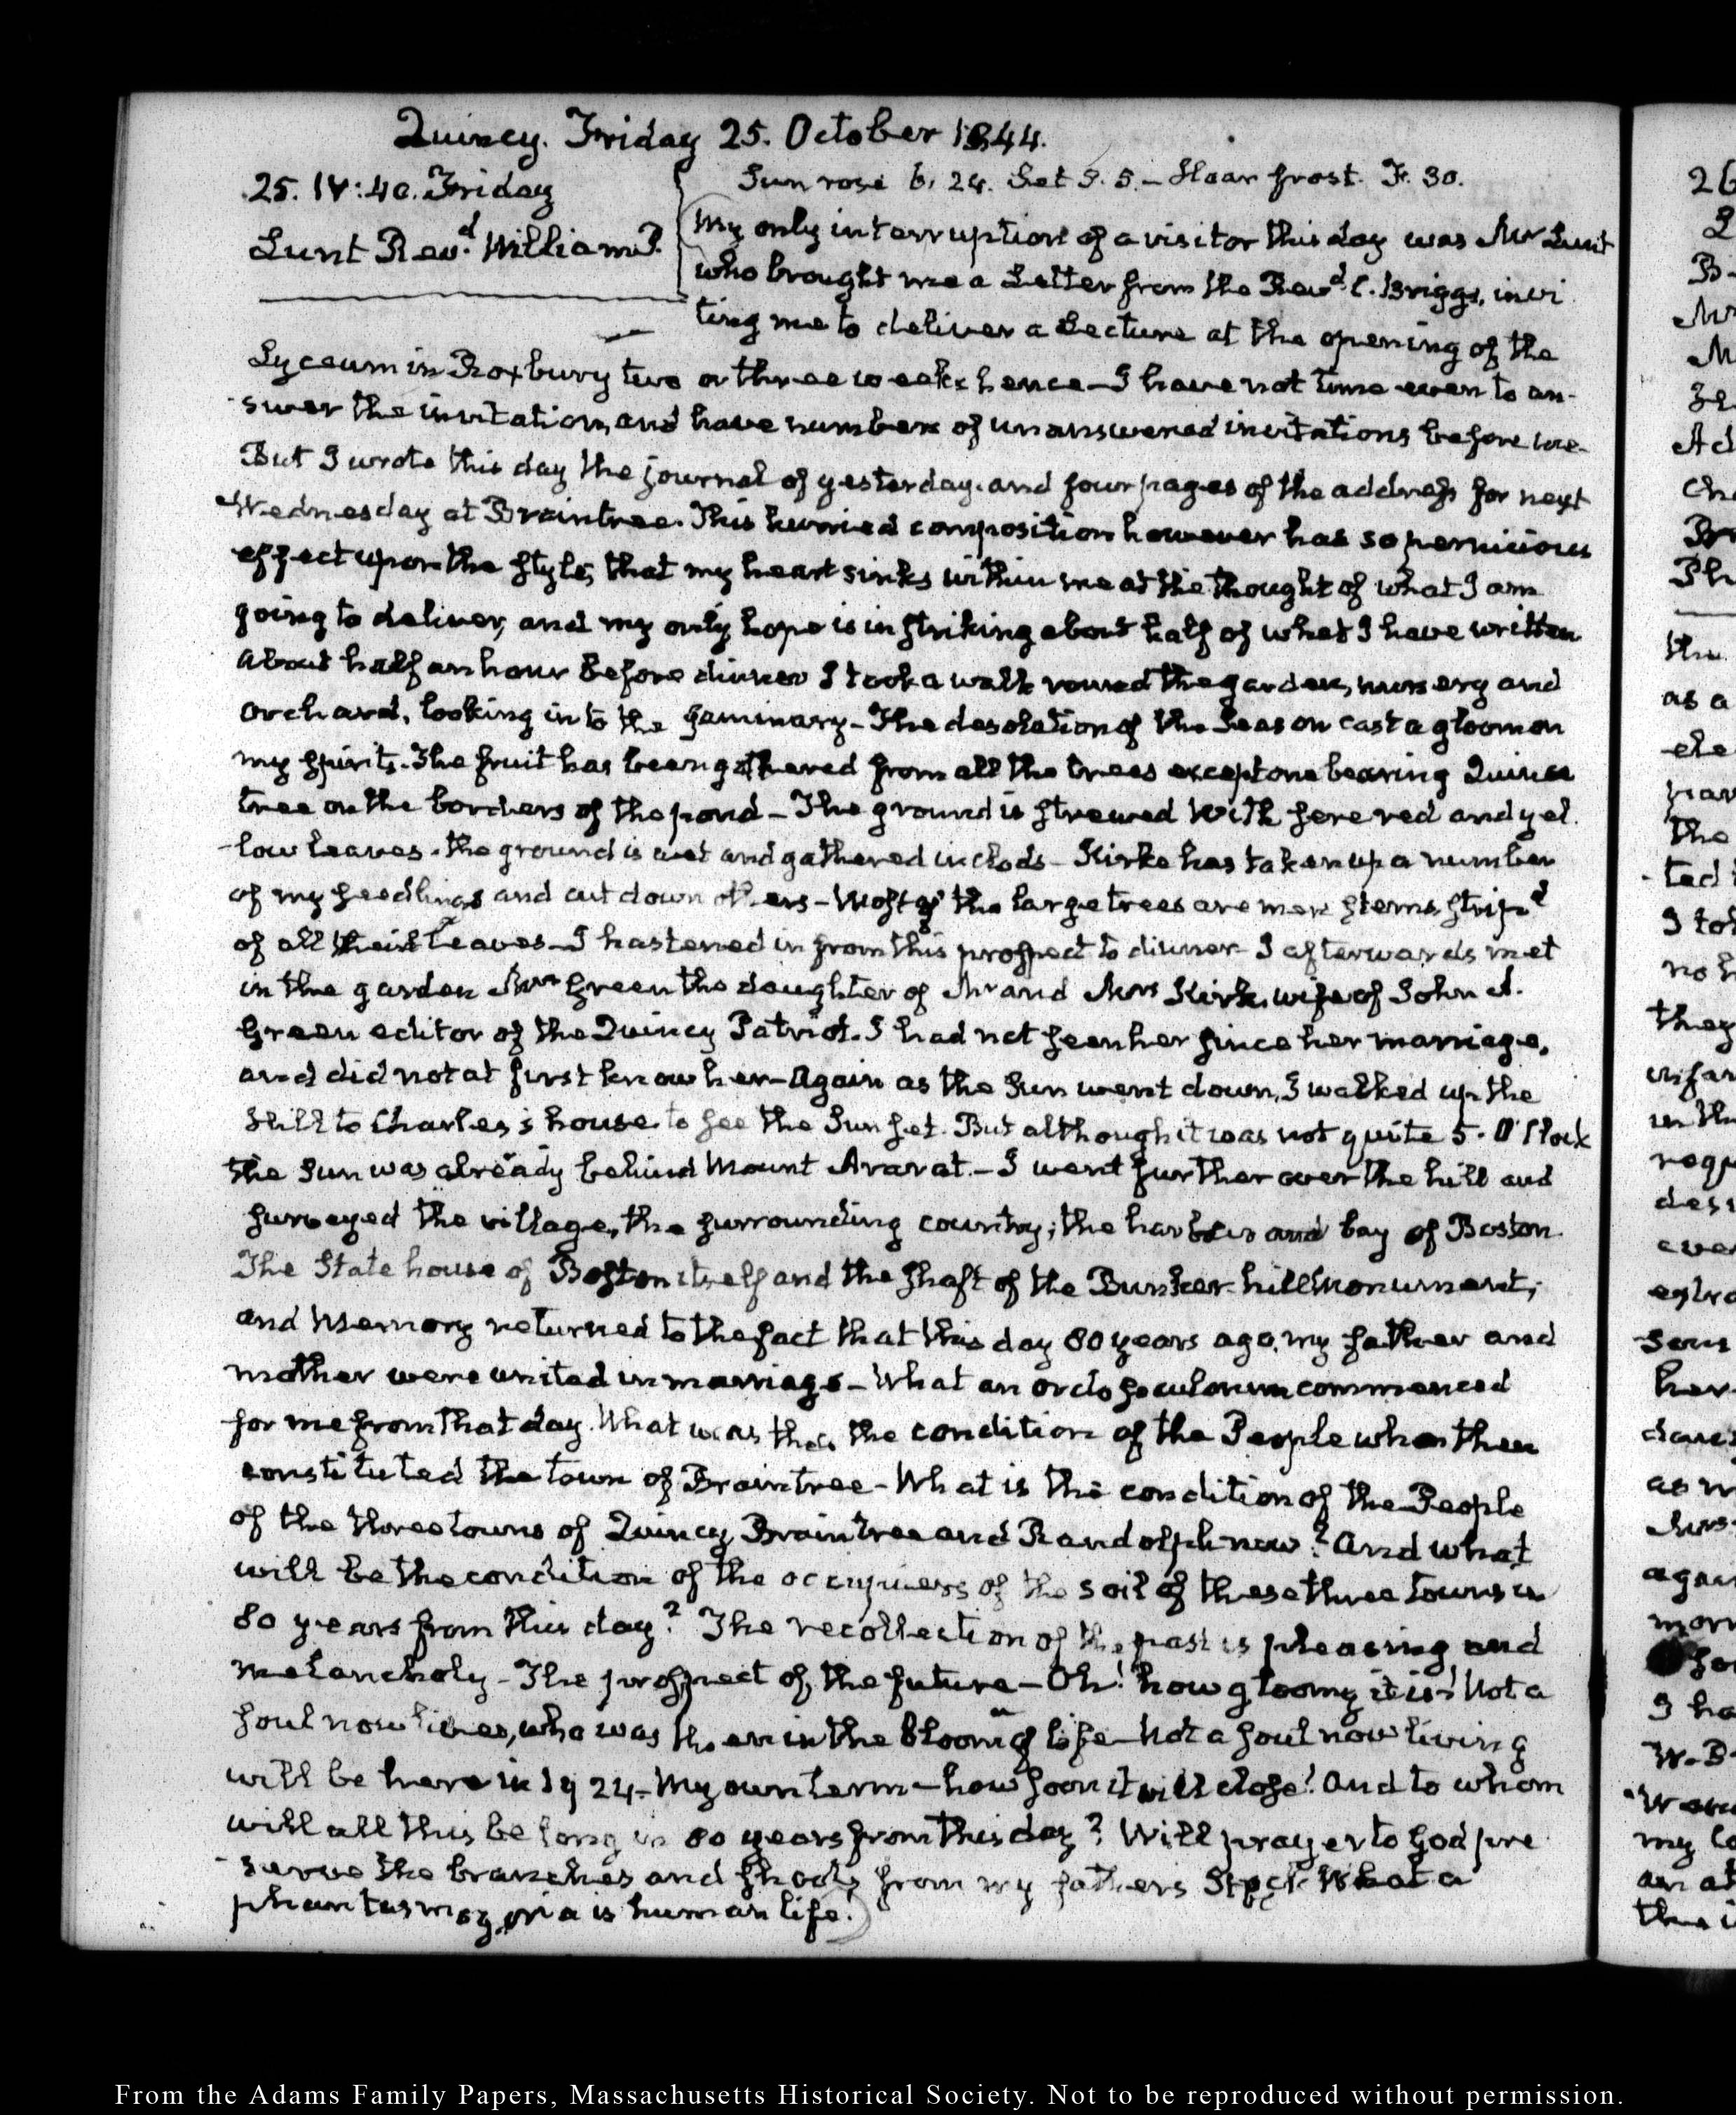 Quincy. Friday 25. October 1844.
25. IV:40. Friday
Lunt Revd. William P.
Sun rose 6. 24. Set 5. 5. – Hoar frost. F. 30.
My only interruption of a visitor this day was Mr Lunt
who brought me a Letter from the Revd. C. Briggs, invi
ting me to deliver a Lecture at the opening of the
Lyceum in Roxbury two or three weeks hence – I have not time even to an-
swer the invitation, and have numbers of unanswered invitations before me –
But I wrote this day the journal of yesterday, and four pages of the address for next
Wednesday at Braintree. This hurried composition however has so pernicious
effect upon the style, that my heart sinks within me at the thought of what I am
going to deliver, and my only hope is in striking about half of what I have written
About half an hour before dinner I took a walk round the garden, nursery and
orchard, looking in to the Seminary – The desolation of the Season cast a gloom on
my spirits. The fruit has been gathered from all the trees except one bearing Quince
tree on the borders of the pond – The ground is strewed with sere red and yel
-low leaves. the ground is wet and gathered in clods – Kirke has taken up a number
of my seedlings and cut down others – Most of the large trees are mere stems strip'd
of all their Leaves – I hastened in from this prospect to dinner – I afterwards met
in the garden Mrs Green the daughter of Mr and Mrs Kirk, wife of John A.
Green editor of the Quincy Patriot. I had not seen her since her marriage,
and did not at first know her – Again as the Sun went down, I walked up the
Hill to Charles's house to see the Sun set. But although it was not quite 5. O'Clock
the Sun was already behind Mount Ararat. – I went further over the hill and
surveyed the village, the surrounding country; the harbour and bay of Boston
The State house of Boston itself and the shaft of the Bunker-hill Monument;
and Memory returned to the fact that this day 80 years ago, my father and
mother were united in marriage – What an ordo seculorum commenced
for me from that day. What was then the condition of the People who then
constituted the town of Braintree – What is the condition of the People
of the three towns of Quincy Braintree and Randolph now? And what
will be the condition of the occupiers of the soil of these three towns in
80 years from this day? The recollection of the past is pleasing and
melancholy – The prospect of the future – Oh! how gloomy it is! Not a
soul now lives, who was then in the bloom of life – Not a soul now living
will be here in 1924 – My own term – how soon it will close! And to whom
will all this belong in 80 years from this day? Will prayer to God pre
-serve the branches and shoots from my fathers Stock What a
phantasmagoria is human life.
From the Adams Family Papers, Massachusetts Historical Society. Not to be reproduced without permission.